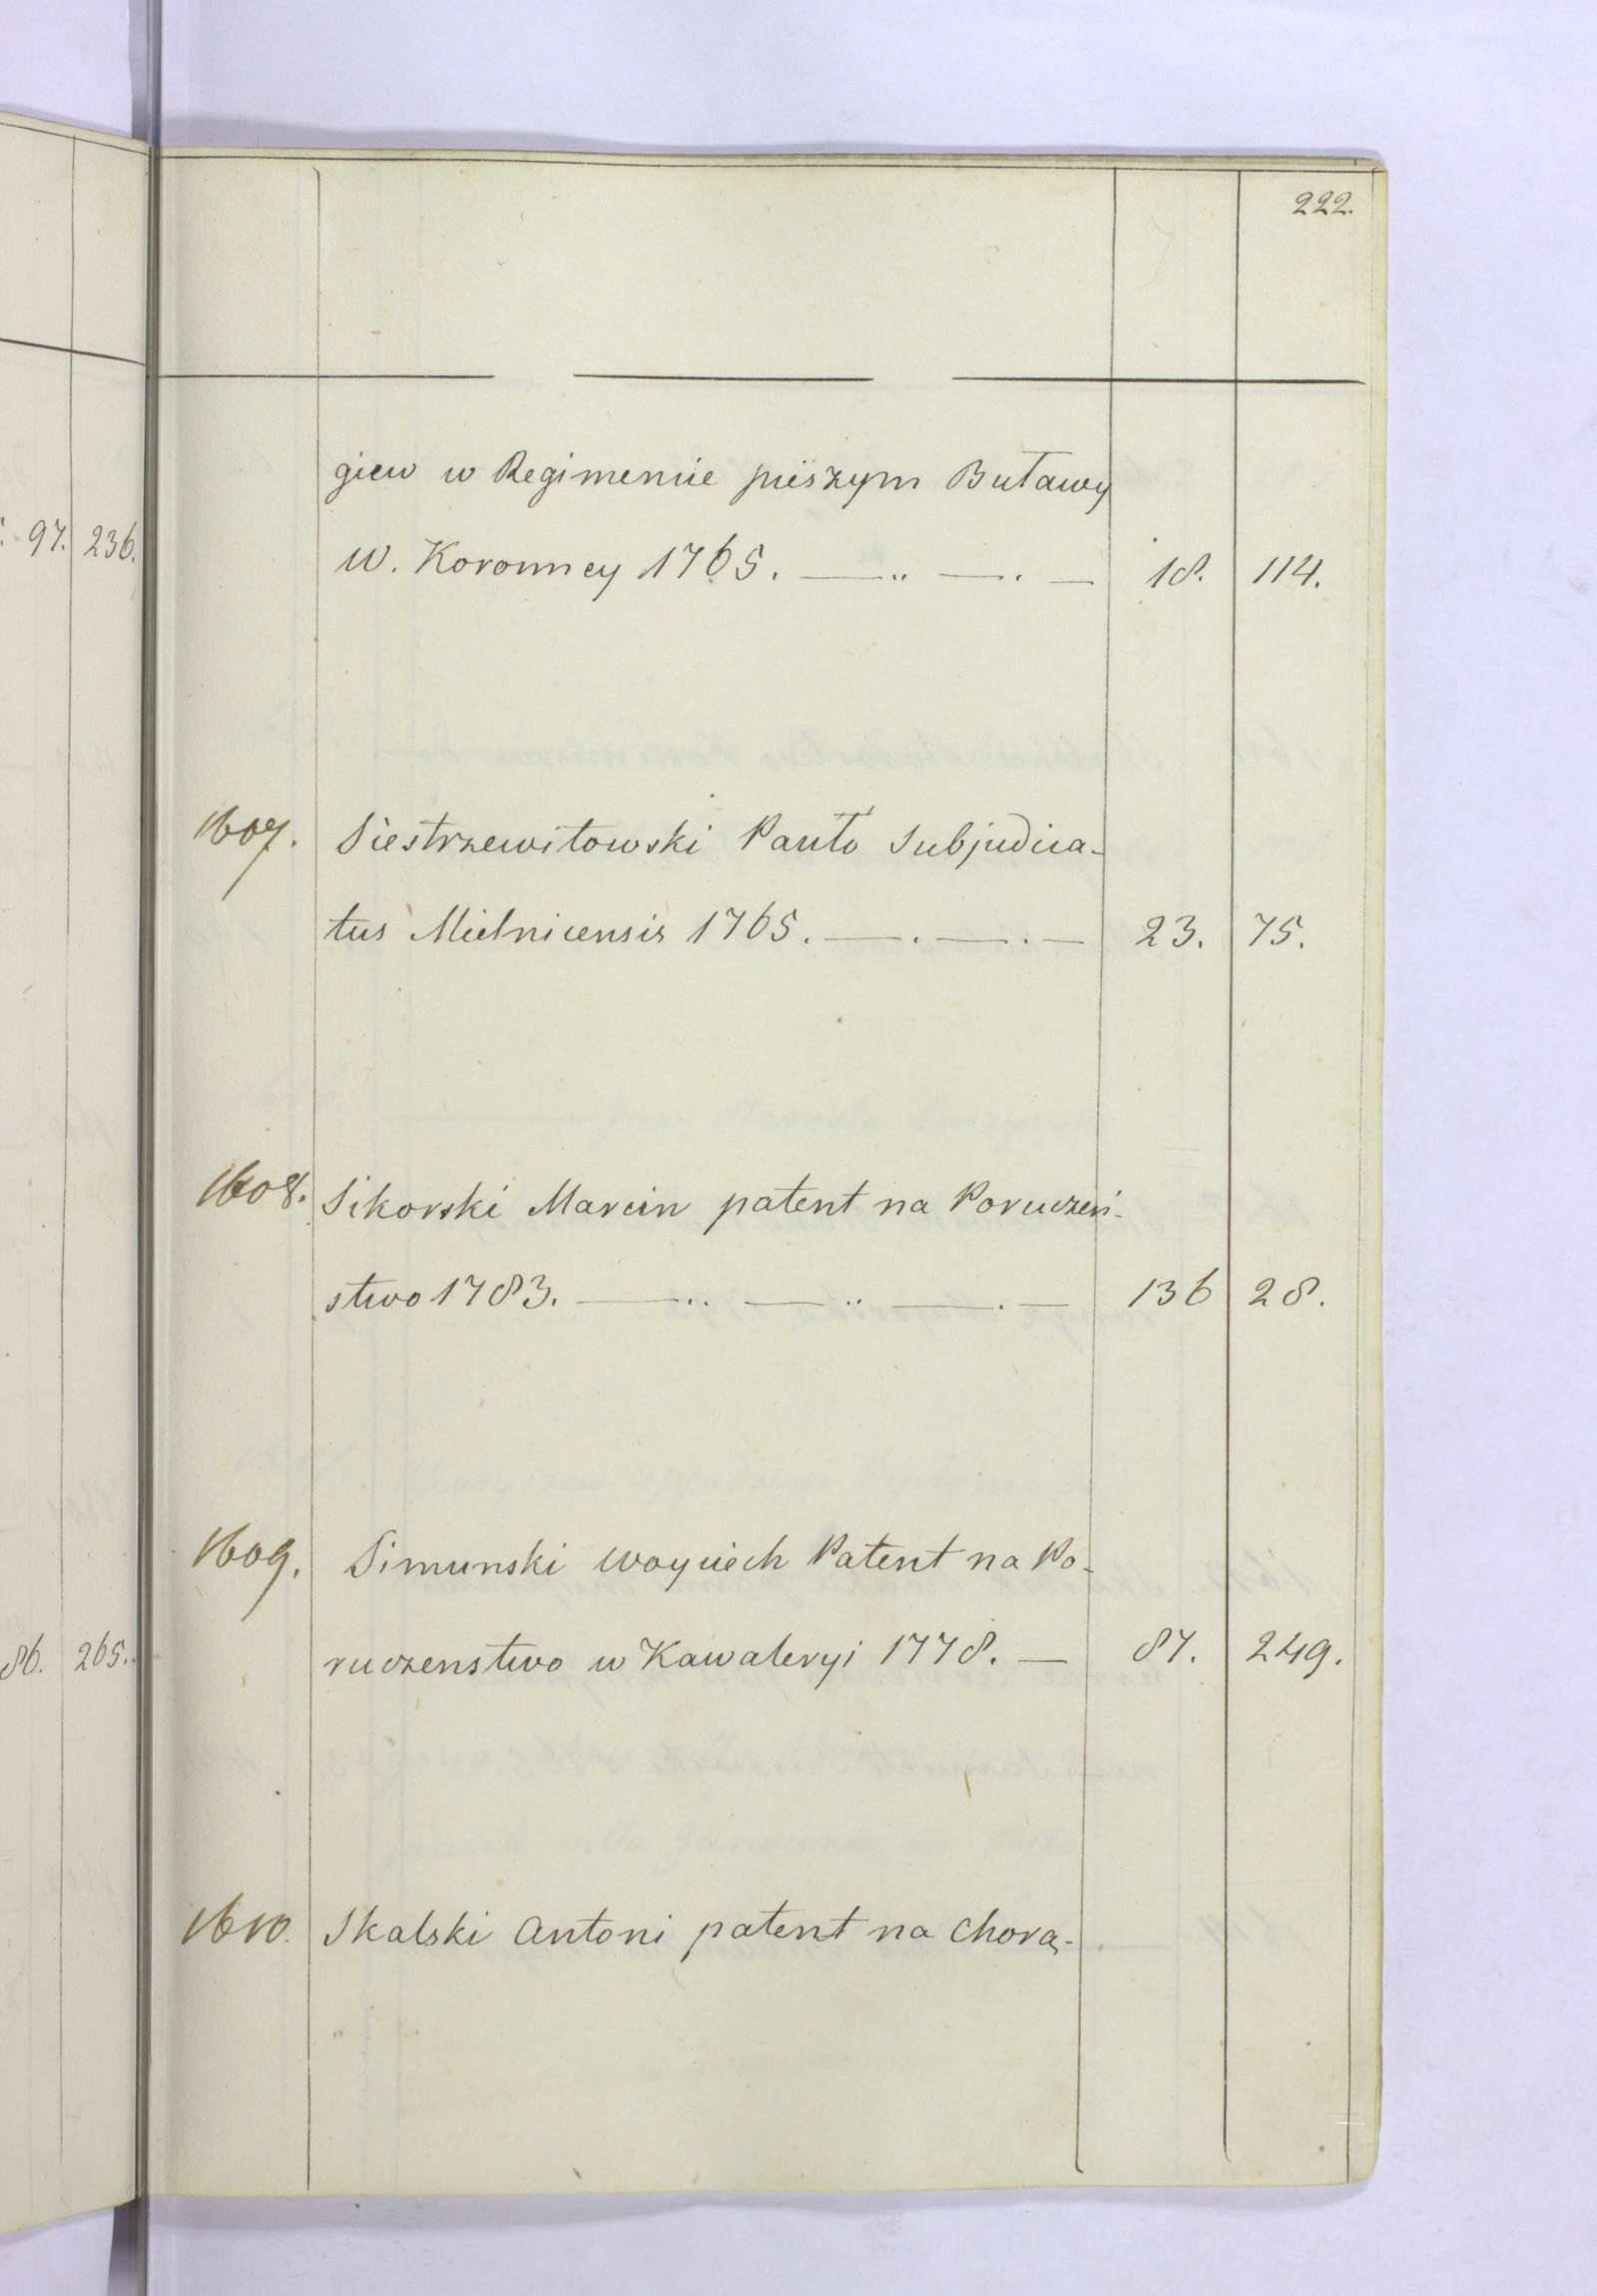 222.
97. 236.
giew w Regimencie pieszym Buławy
W. Koronney 1765. —..—.— 18. 114.
1607. Siestrzewitowski Pauło Subjudica-
tus Mielnicensis 1765. —.—.— 23. 75.
1608. Sikorski Marcin patent na Poruczeń-
stwo 1783. —..—..—.— 136 28.
1609. Simunski Woyciech Patent na Po-
ruczenstwo w Kawaleryi 1778. — 87. 249.
86. 265.
1610. Skalski Antoni patent na Chorą-